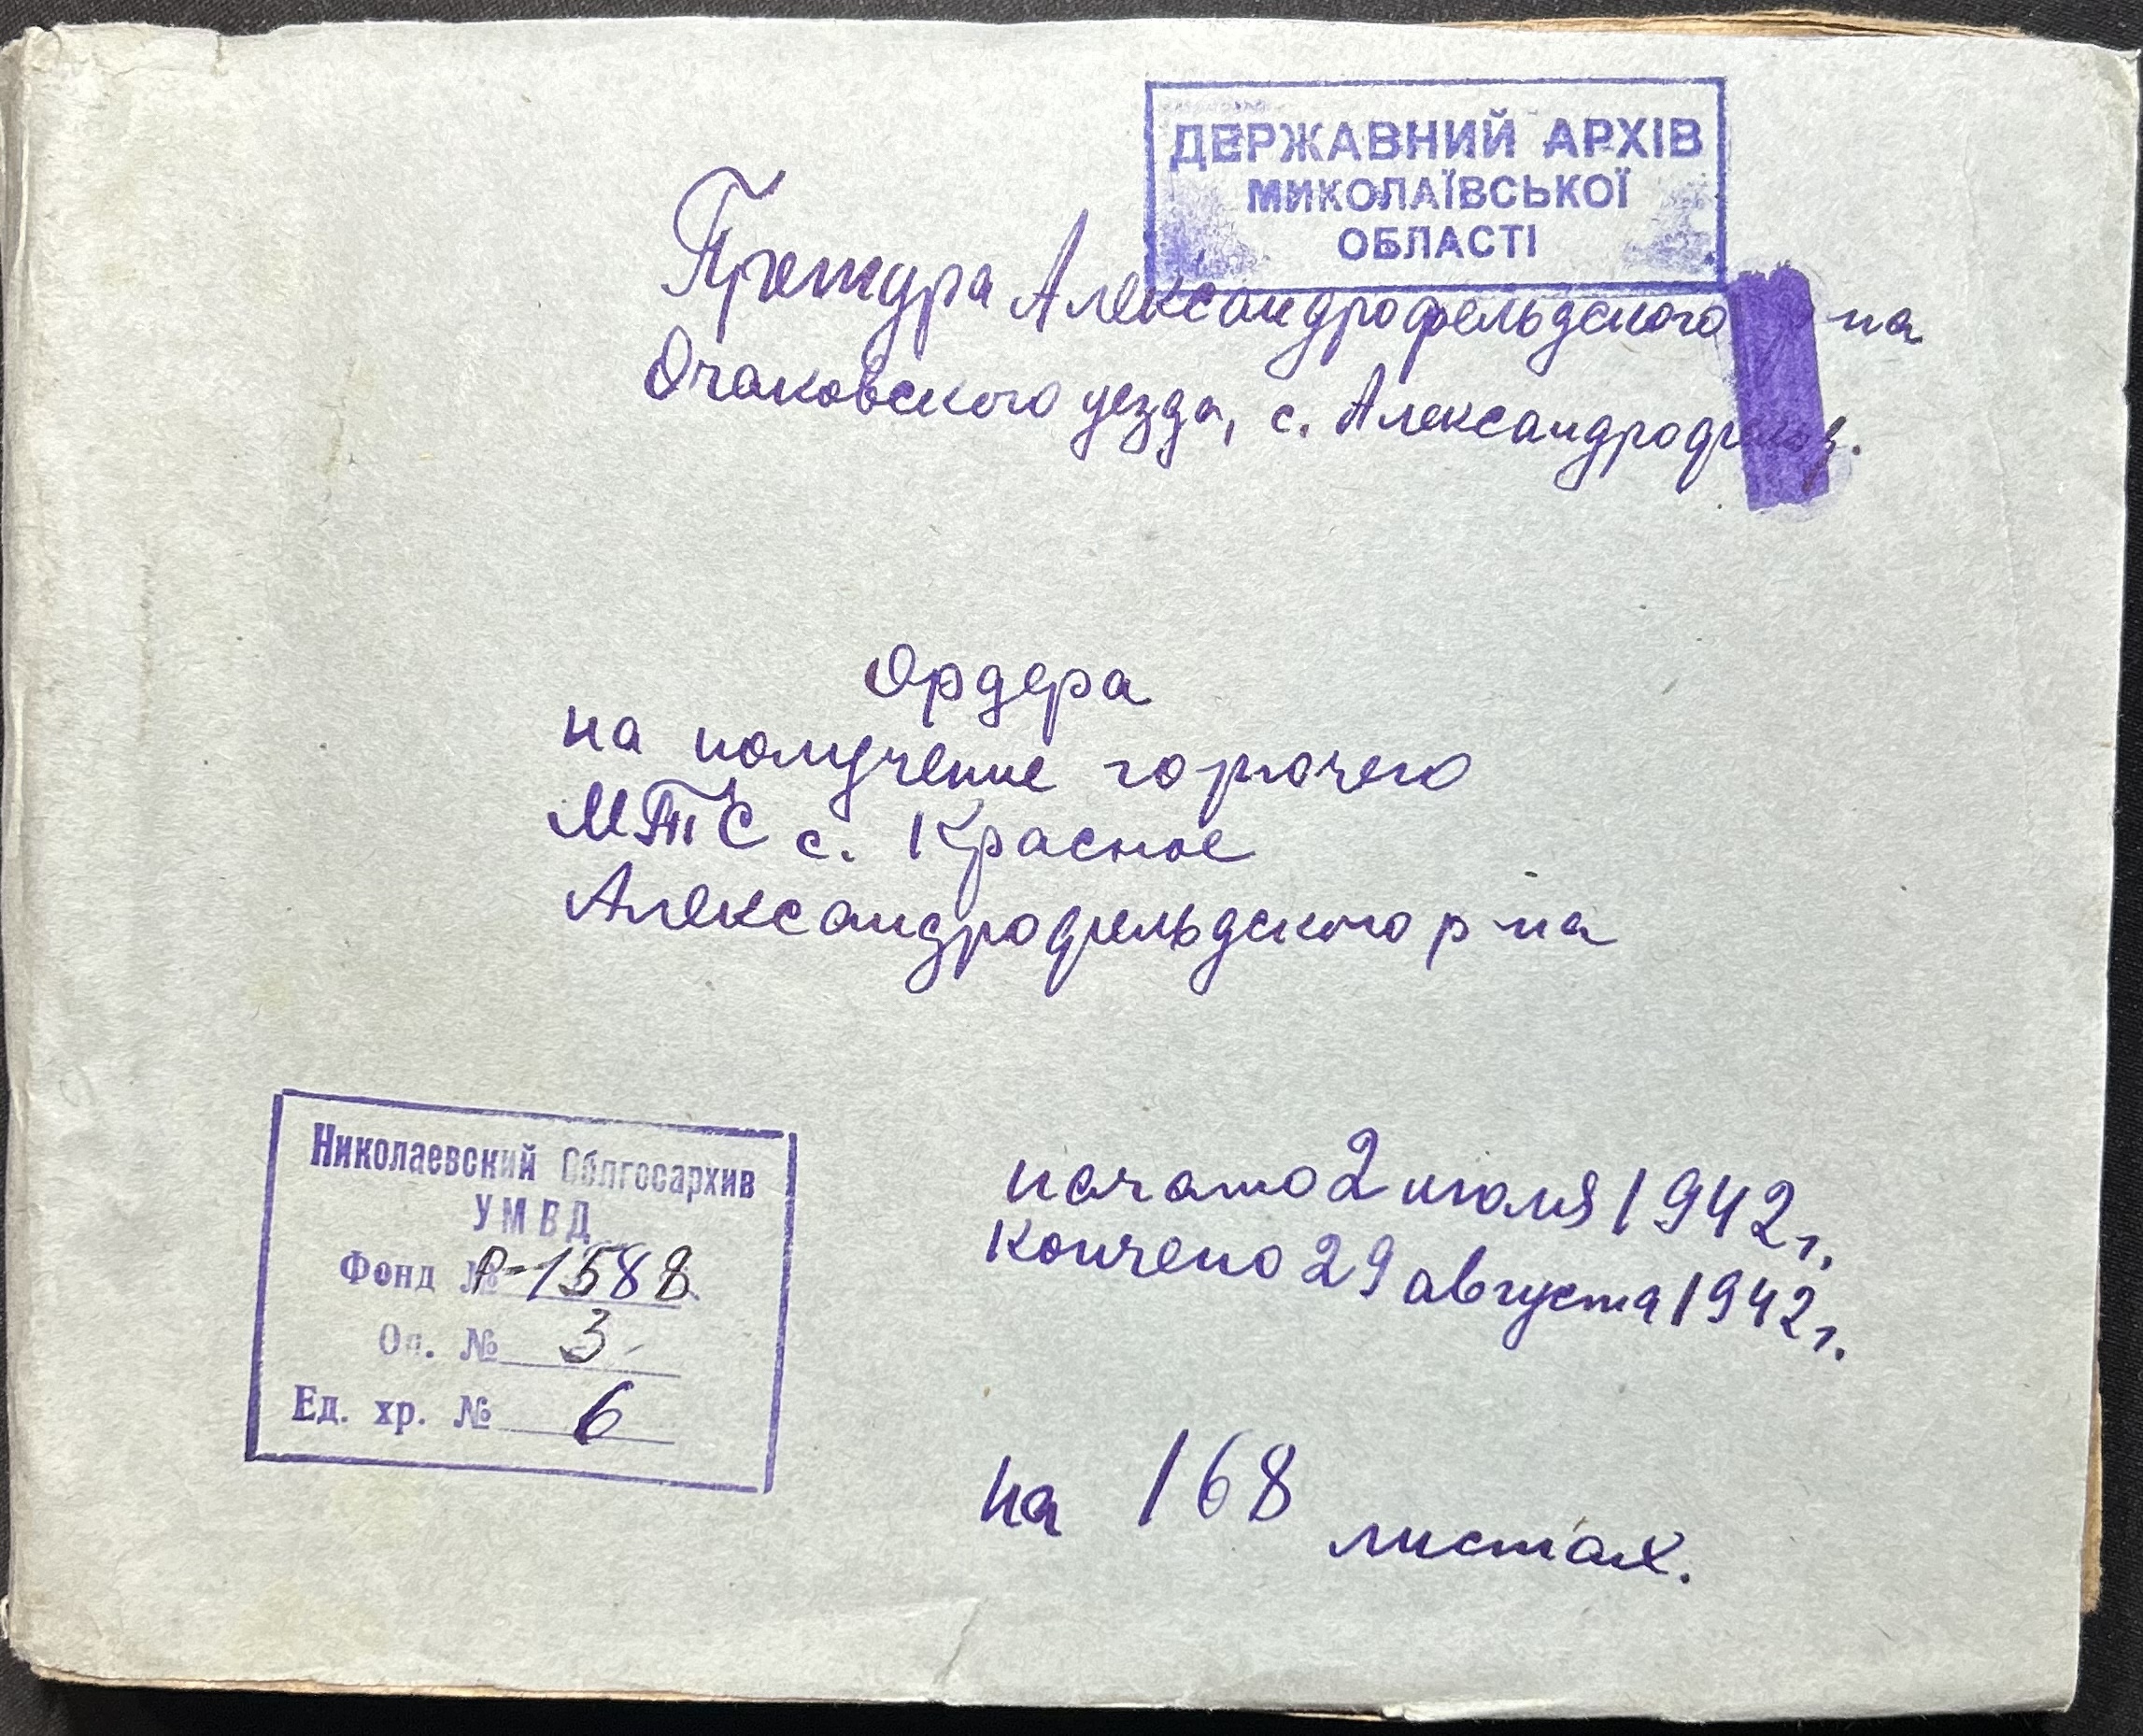 ДЕРЖАВНИЙ АРХІВ
МИКОЛАЇВСЬКОЇ
ОБЛАСТІ
Претура Александрофельдского -на
Очаковского уезда, с. Александрофельд.
Ордера
на получение горючего
МТС с. Красное
Александрофельдского р-на
Николаевский Облгосархив
УМВД
Фонд № Р-1588
Оп. № 3
Ед. хр. № 6
начато 2 июля 1942 г.
Кончено 29 августа 1942 г.
на 168 листах.